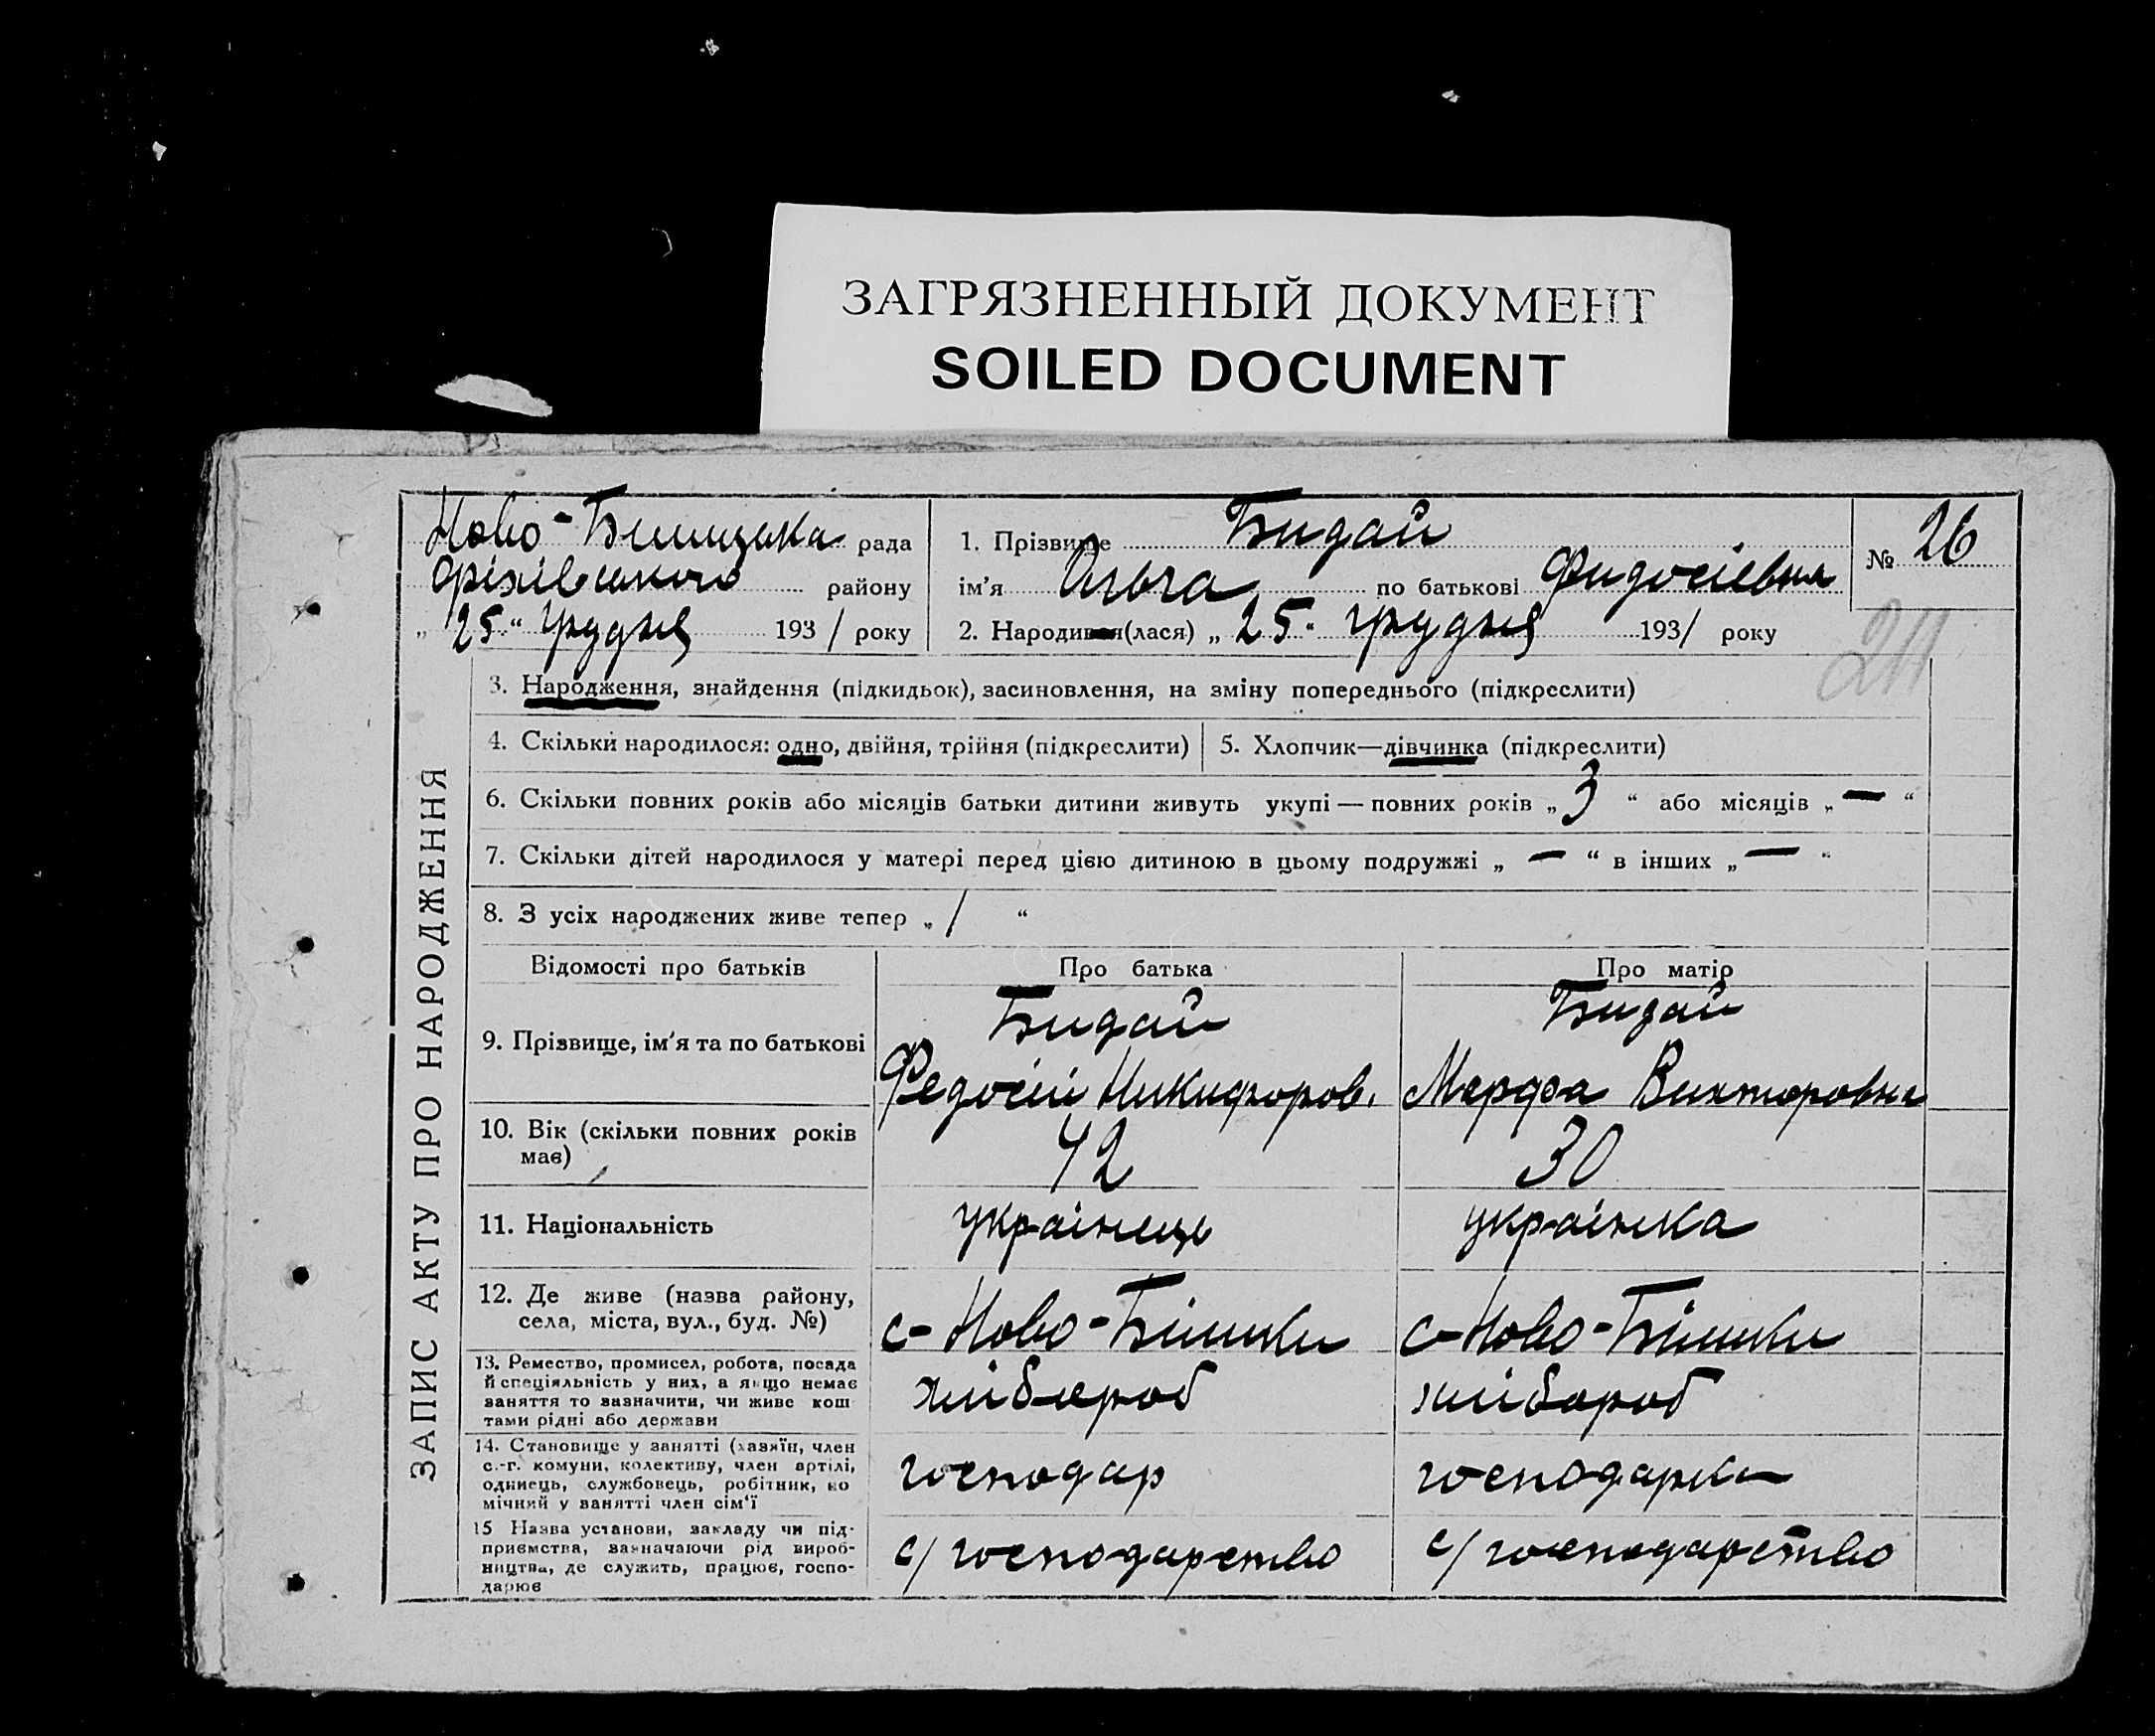 ЗАГРЯЗНЕННЫЙ ДОКУМЕНТ
SOILED DOCUMENT
ЗАПИС АКТУ ПРО НАРОДЖЕННЯ
Ново-Билицька рада
Оріхівського району
„25“ грудня 1931 року
1. Прізвище Бидай
ім'я Ольга по батькові Фидосіевна
2. Народився(лася) „25“ грудня 1931 року
№ 26
211
3. Народження, знайдення (підкидьок), засиновлення, на зміну попереднього (підкреслити)
4. Скільки народилося: одно, двійня, трійня (підкреслити)
5. Хлопчик—дівчинка (підкреслити)
6. Скільки повних років або місяців батьки дитини живуть укупі — повних років „3“ або місяців „—“
7. Скільки дітей народилося у матері перед цією дитиною в цьому подружжі „—“ в інших „—“
8. З усіх народжених живе тепер „1“
Відомості про батьків Про батька Про матір
9. Прізвище, ім'я та по батькові
Бидай
Федосій Никифоров.
Бидай
Марфа Вихторовна
10. Вік (скільки повних років
має)
42
30
11. Національність
українець
українка
12. Де живе (назва району,
села, міста, вул., буд. №)
с-Ново-Білики
с-Ново-Білики
13. Ремество, промисел, робота, посада
й спеціяльність у них, а якщо немає
заняття то зазначити, чи живе кош
тами рідні або держави
хлібороб
хлібороб
14. Становище у занятті (хазяїн, член
с.-г. комуни, колективу, член артілі,
одинець, службовець, робітник, по
мічний у занятті член сім'ї
господар
господарка
15 Назва установи, закладу чи під-
приємства, зазначаючи рід вироб-
ництва, де служить, працює, госпо-
дарює
с/господарство
с/господарство